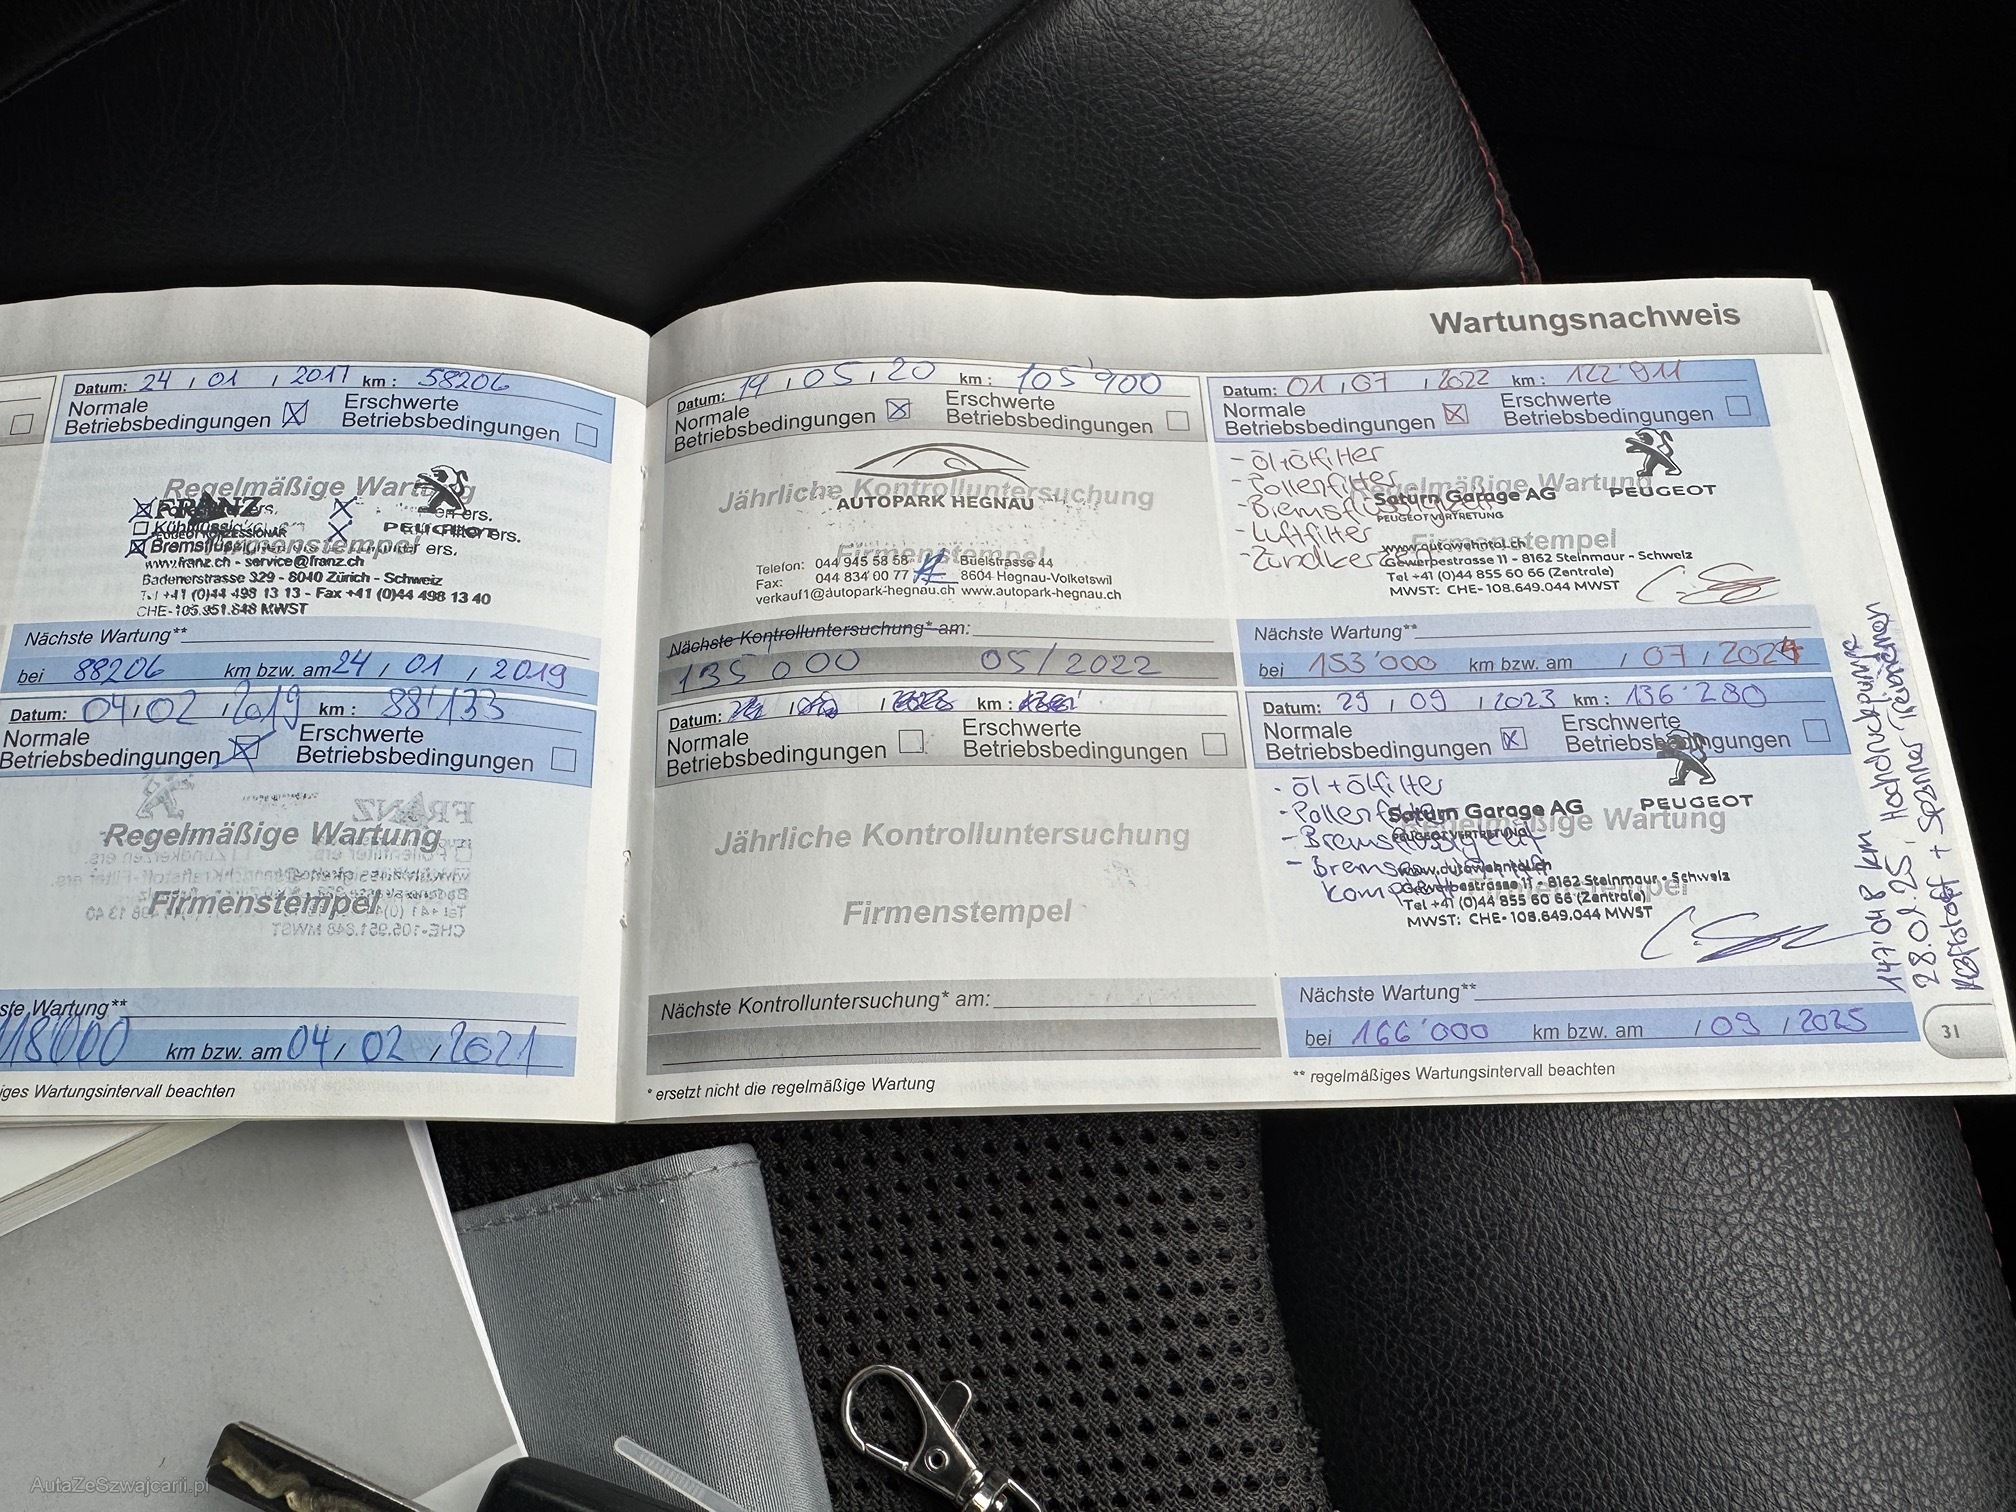 Wartungsnachweis
Datum: 24 , 01 , 2017 km : 58206
Normale
Betriebsbedingungen
Erschwerte
Betriebsbedingungen
Regelmäßige Wartung
FRANZ
PEUGEOT
ers.
Bremsflüss
ers.
Firmenstempel
www.franz.ch - service@franz.ch
Badenerstrasse 329 - 8040 Zürich - Schweiz
Tel +41 (0)44 498 13 13 - Fax +41 (0)44 498 13 40
CHE-105.951.848 MWST
Nächste Wartung**
bei 88206 km bzw. am 24 , 01 , 2019
Datum: 04 , 02 , 2019 km : 88'133
Normale
Betriebsbedingungen
Erschwerte
Betriebsbedingungen
Regelmäßige Wartung
Firmenstempel
ste Wartung**
118'000 km bzw. am 04 , 02 , 2021
iges Wartungsintervall beachten
Datum: 14 , 05 , 20 km : 105'900
Normale
Betriebsbedingungen
Erschwerte
Betriebsbedingungen
Jährliche Kontrolluntersuchung
AUTOPARK HEGNAU
Firmenstempel
Telefon: 044 945 58 58 Buelstrasse 44
Fax: 044 834 00 77 8604 Hegnau-Volketswil
verkauf1@autopark-hegnau.ch www.autopark-hegnau.ch
Nächste Kontrolluntersuchung* am:
135000 05/2022
Datum: km :
Normale
Betriebsbedingungen
Erschwerte
Betriebsbedingungen
Jährliche Kontrolluntersuchung
Firmenstempel
Nächste Kontrolluntersuchung* am:
* ersetzt nicht die regelmäßige Wartung
Datum: 01 , 07 , 2022 km : 122'911
Normale
Betriebsbedingungen
Erschwerte
Betriebsbedingungen
- Öl+Ölfilter
- Pollenfilter
Regelmäßige Wartung
PEUGEOT
Saturn Garage AG
- Bremsflüssigkeit
PEUGEOT VERTRETUNG
- Luftfilter
Firmenstempel
www.autowehntal.ch
- Zündkerzen
Gewerbestrasse 11 - 8162 Steinmaur - Schweiz
Tel +41 (0)44 855 60 66 (Zentrale)
MWST: CHE-108.649.044 MWST
Nächste Wartung**
bei 153'000 km bzw. am , 07 , 2024
Datum: 29 , 09 , 2023 km : 136'280
Normale
Betriebsbedingungen
Erschwerte
Betriebsbedingungen
- Öl + Ölfilter
PEUGEOT
- Pollenfilter
Saturn Garage AG
Regelmäßige Wartung
- Bremsflüssigkeit
PEUGEOT VERTRETUNG
www.autowehntal.ch
Gewerbestrasse 11 - 8162 Steinmaur - Schweiz
Firmenstempel
Tel +41 (0)44 855 60 66 (Zentrale)
MWST: CHE-108.649.044 MWST
Nächste Wartung**
bei 166'000 km bzw. am , 09 , 2025
** regelmäßiges Wartungsintervall beachten
147'048 km Hochdruckpumpe
Kraftstoff + Spanner
31
AutaZeSzwajcarii.pl